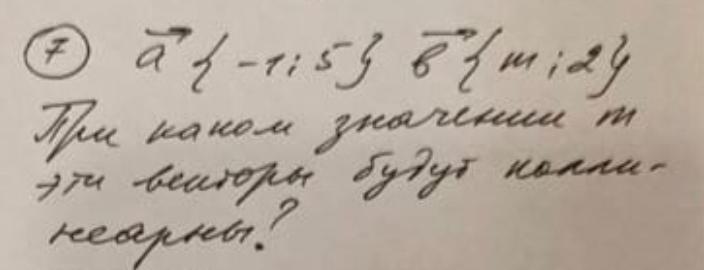 ⑦ a⃗ {-1; 5} b⃗ {m; 2}
При каком значении m
эти векторы будут колли-
неарны?